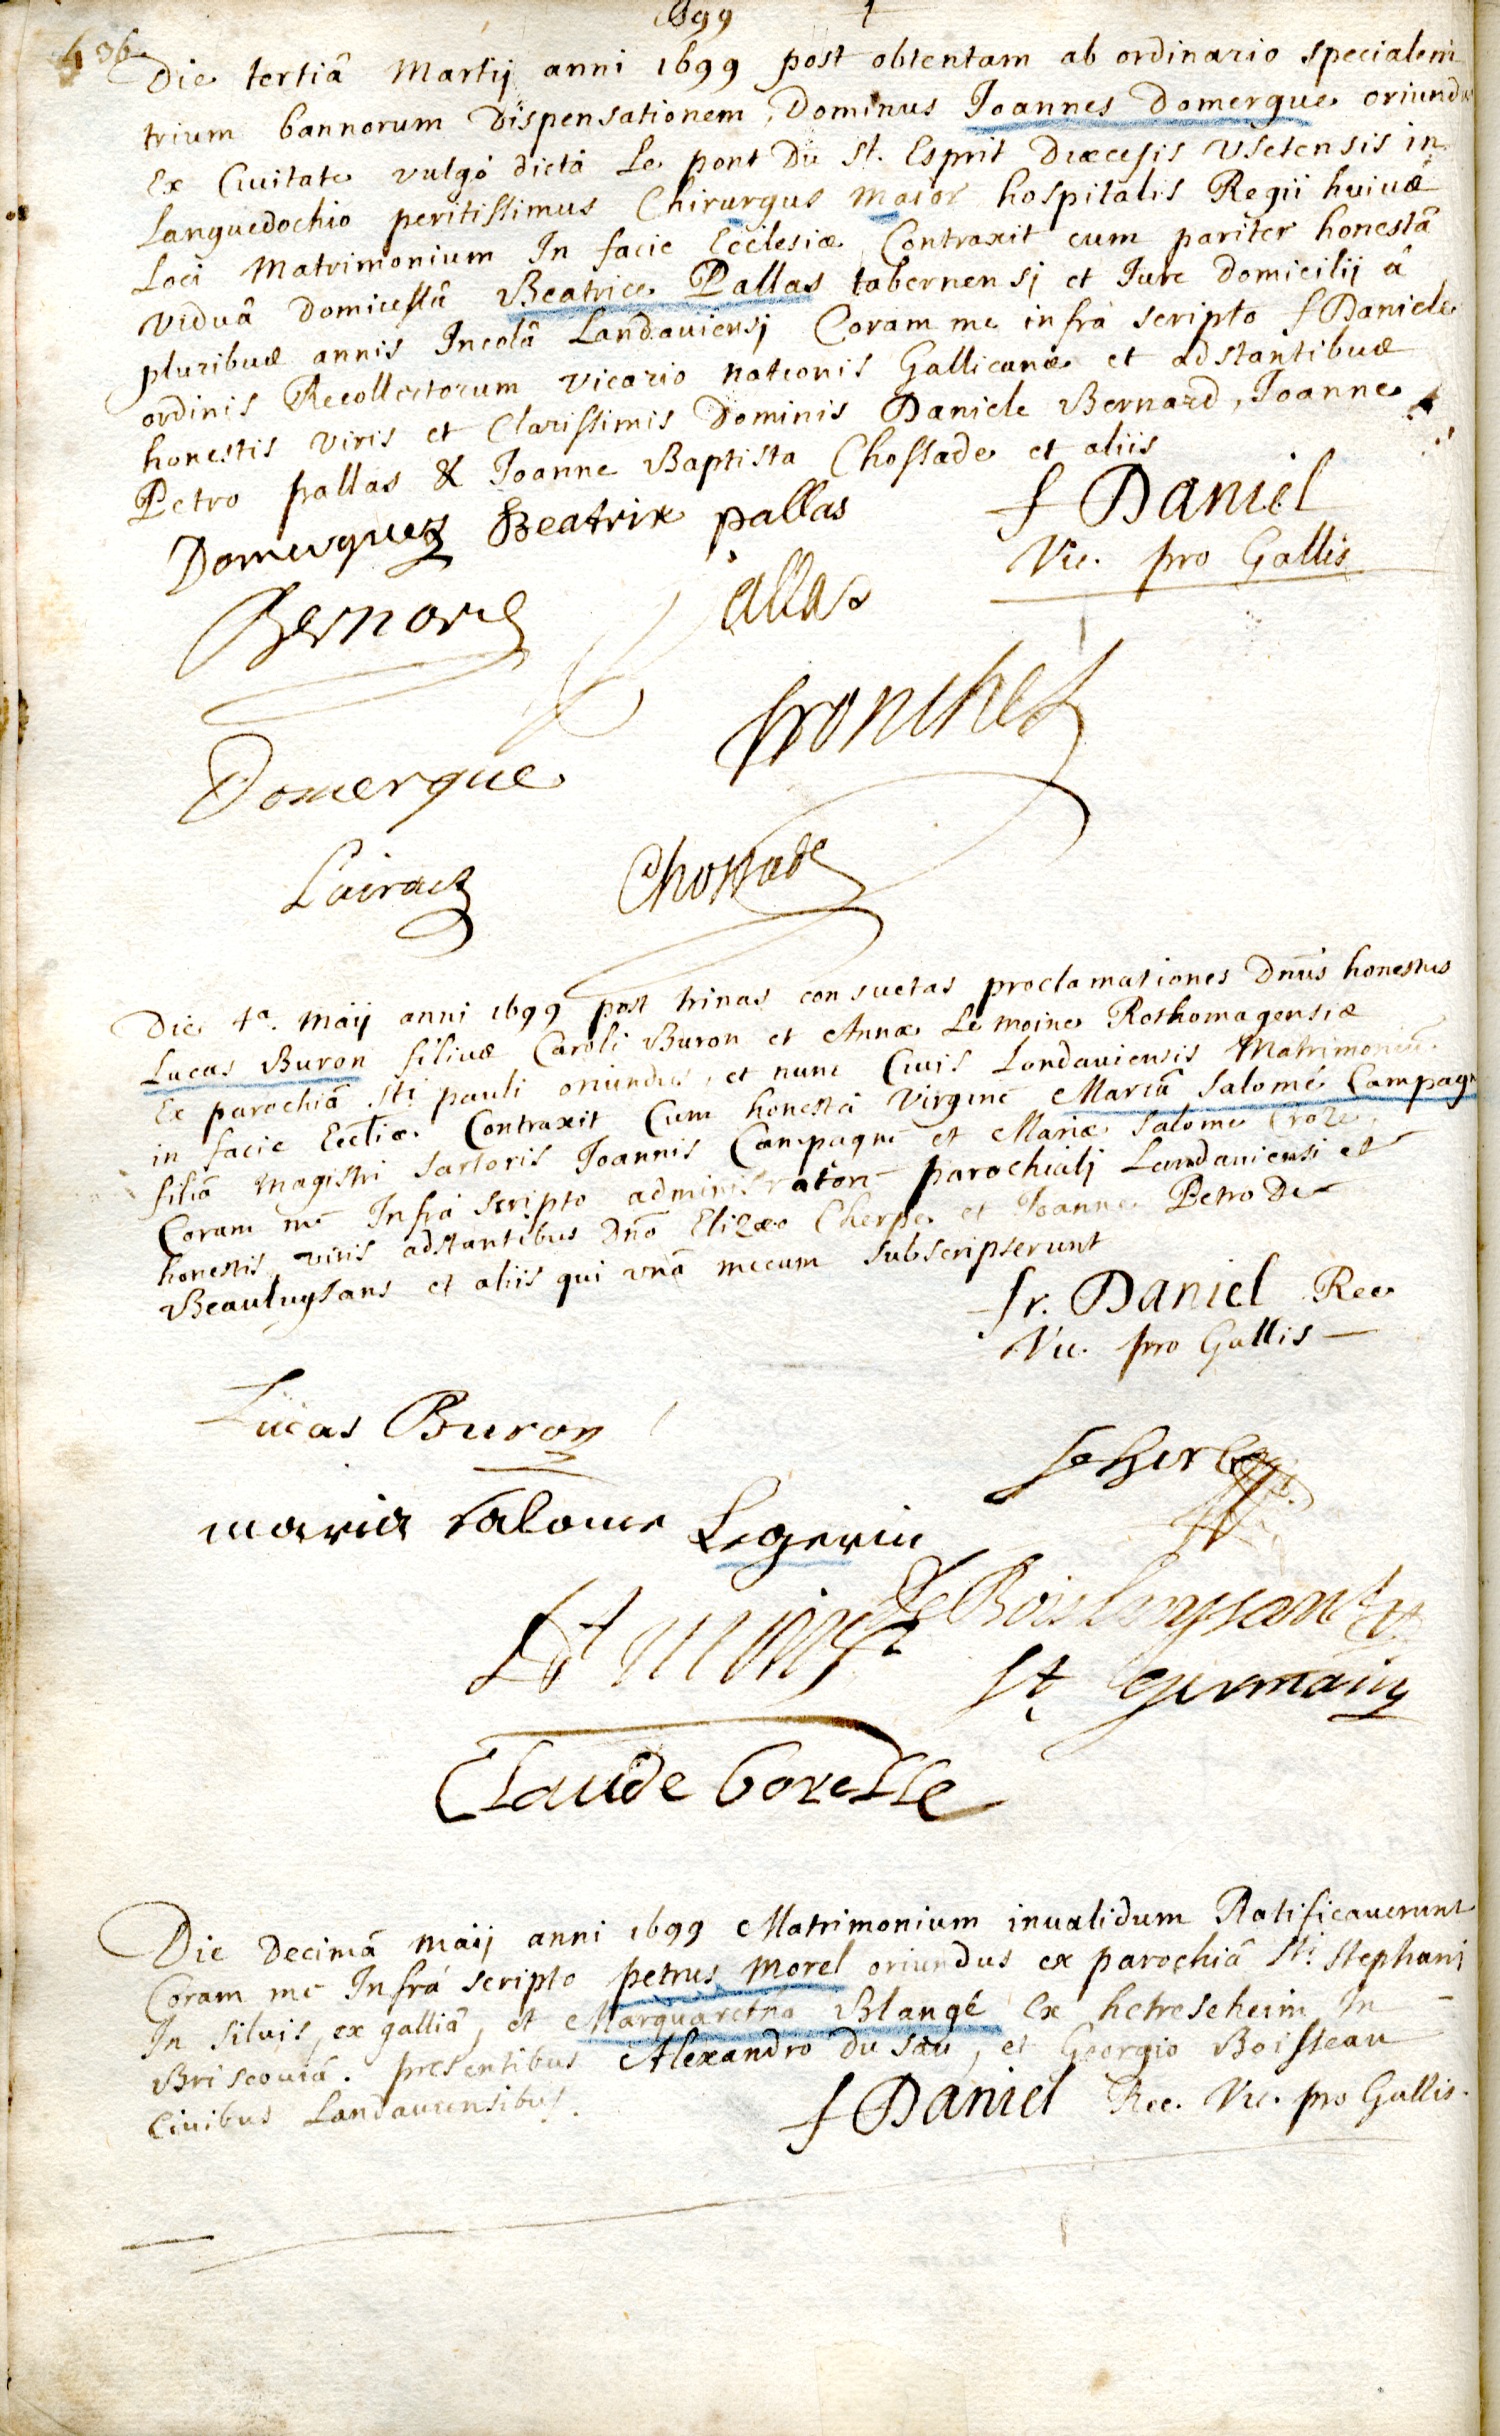 1699
636
Die tertiâ Martij anni 1699 post obtentam ab ordinario specialem
trium bannorum Dispensationem, Dominus Joannes Domergue oriundus
Ex Ciuitate vulgó dictâ Le pont Du st. Esprit Diœcesis Usetensis in
Languedochio peritissimus Chirurgus Maior hospitalis Regii huius
Loci Matrimonium In facie Ecclesiæ Contraxit cum pariter honestâ
viduâ Domicellâ Beatrice Pallas tabernensj et Jure Domicilij â
pluribus annis Incolâ Landauiensj Coram me infrà scripto f Daniele
ordinis Recollectorum vicario nationis Gallicanæ et adstantibus
honestis viris et Clarissimis Dominis Daniele Bernard, Joanne
Petro pallas & Joanne Baptista Chossade et aliis
Domergue Beatrix pallas f Daniel
Vic. pro Gallis
Bernard Pallas
Domergue
Chossade
Die 4a. Maij anni 1699 post trinas consuetas proclamationes Dnûs honestus
Lucas Buron filius Caroli Buron et Annæ Le moine Rothomagensis
Ex parochiâ sti pauli oriundus, et nunc Ciuis Landauiensis Matrimoniū
in facie Eccliæ Contraxit Cum honestâ Virgine Mariâ Salomé Campagn
filiâ Magistri Sartoris Joannis Campagne et Mariæ Salome Croze
Coram me Infrà scripto administratore parochialj Landauiensi et
honestis viris adstantibus Dnô Elizæo Cherpe et Joanne Petro De
Beauluysans et aliis qui vnâ mecum subscripserunt
fr. Daniel Rec
Vic. pro Gallis
Lucas Buron
maria Salome Legerin
st germain
Claude
Die Decimâ maij anni 1699 Matrimonium inualidum Ratificauerunt
Coram me Infrà scripto petrus Morel oriundus ex parochiâ sti. stephani
In siluis, ex galliâ, et Marguaretha Blangé Ex hetreseheim In
Briscouiâ. presentibus Alexandro du sau, et Georgio Boisseau
Ciuibus Landauiensibus.
f Daniel Rec. Vic. pro Gallis.